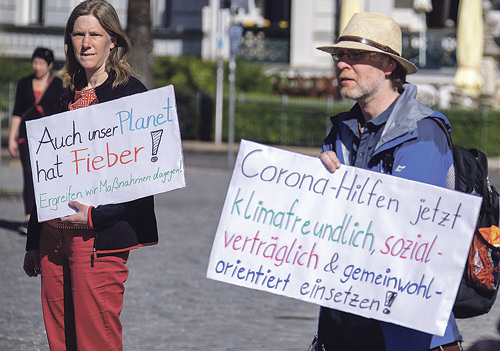 Auch unser Planet
hat Fieber!
Ergreifen wir Maßnahmen dagegen!
Corona-Hilfen jetzt
klimafreundlich, sozial-
verträglich & gemeinwohl-
orientiert einsetzen!